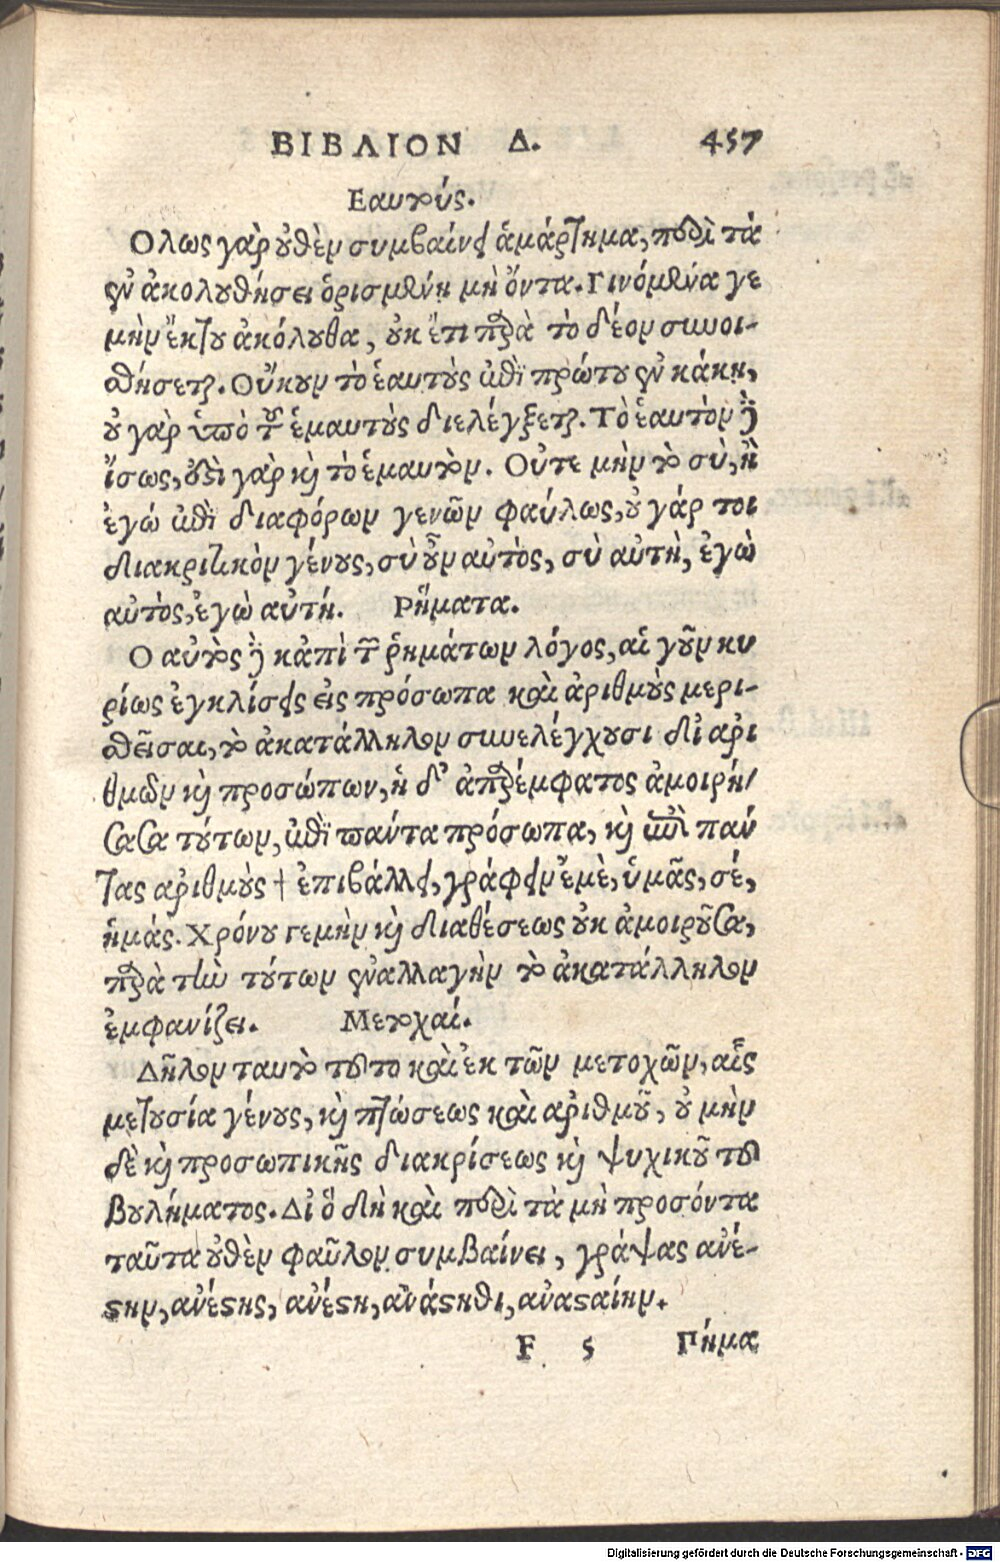 ΒΙΒΛΙΟΝ Δ. 457
Εαυτούς.
Ολως γὰρ οὐθὲν συμβαίνει ἁμάρτημα, περὶ τά
ἐν ἀκολουθήσει ὁρισμένῃ μὴ ὄντα. Γινόμενά γε
μὴν ἔκ του ἀκόλουθα, οὐκ ἔτι παρὰ τὸ δέον συνοι-
σθήσεται. Οὔκουν τὸ ἑαυτοὺς ἐπὶ πρώτου ἐν κάκῃ,
οὐ γὰρ ὑπὸ τοῦ ἐμαυτοὺς διελέγξεται. Τὸ ἑαυτὸν δὲ
ἴσως, ἐπεὶ γὰρ καὶ τὸ ἐμαυτόν. Οὔτε μὴν τὸ σὺ, ἢ
ἐγώ ἐπὶ διαφόρων γενῶν φαύλως, οὐ γάρ τοι
διακριτικὸν γένους, σὺ οὖν αὐτὸς, σὺ αὐτὴ, ἐγὼ
αὐτὸς, ἐγὼ αὐτή. Ρήματα.
Ο αὐτός δὲ κἀπὶ τῶν ῥημάτων λόγος, αἱ γοῦν κυ
ρίως ἐγκλίσεις εἰς πρόσωπα καὶ ἀριθμοὺς μερι-
σθεῖσαι, τὸ ἀκατάλληλον συνελέγχουσι δι' ἀρι
θμῶν καὶ προσώπων, ἡ δ' ἀπαρέμφατος ἀμοιρή/
σασα τούτων, ἐπὶ πάντα πρόσωπα, καὶ ἐπὶ πάν
τας ἀριθμοὺς † ἐπιβάλλει, γράφειν ἐμὲ, ὑμᾶς, σέ,
ἡμάς. Χρόνου γεμὴν καὶ διαθέσεως οὐκ ἀμοιροῦσα,
παρὰ τὴν τούτων ἐναλλαγὴν τὸ ἀκατάλληλον
ἐμφανίζει. Μετοχαί.
Δῆλον ταυτὸ τοῦτο καὶ ἐκ τῶν μετοχῶν, αἷς
μετουσία γένους, καὶ πτώσεως καὶ ἀριθμοῦ, οὐ μὴν
δὲ καὶ προσωπικῆς διακρίσεως καὶ ψυχικοῦ του
βουλήματος. Δι' ὃ δὴ καὶ περὶ τὰ μὴ προσόντα
ταῦτα οὐθὲν φαῦλον συμβαίνει, γράψας ἀνέ-
στην, ἀνέστης, ἀνέστη, ἀνάστηθι, ἀνασταίην.
F 5 Πήμα